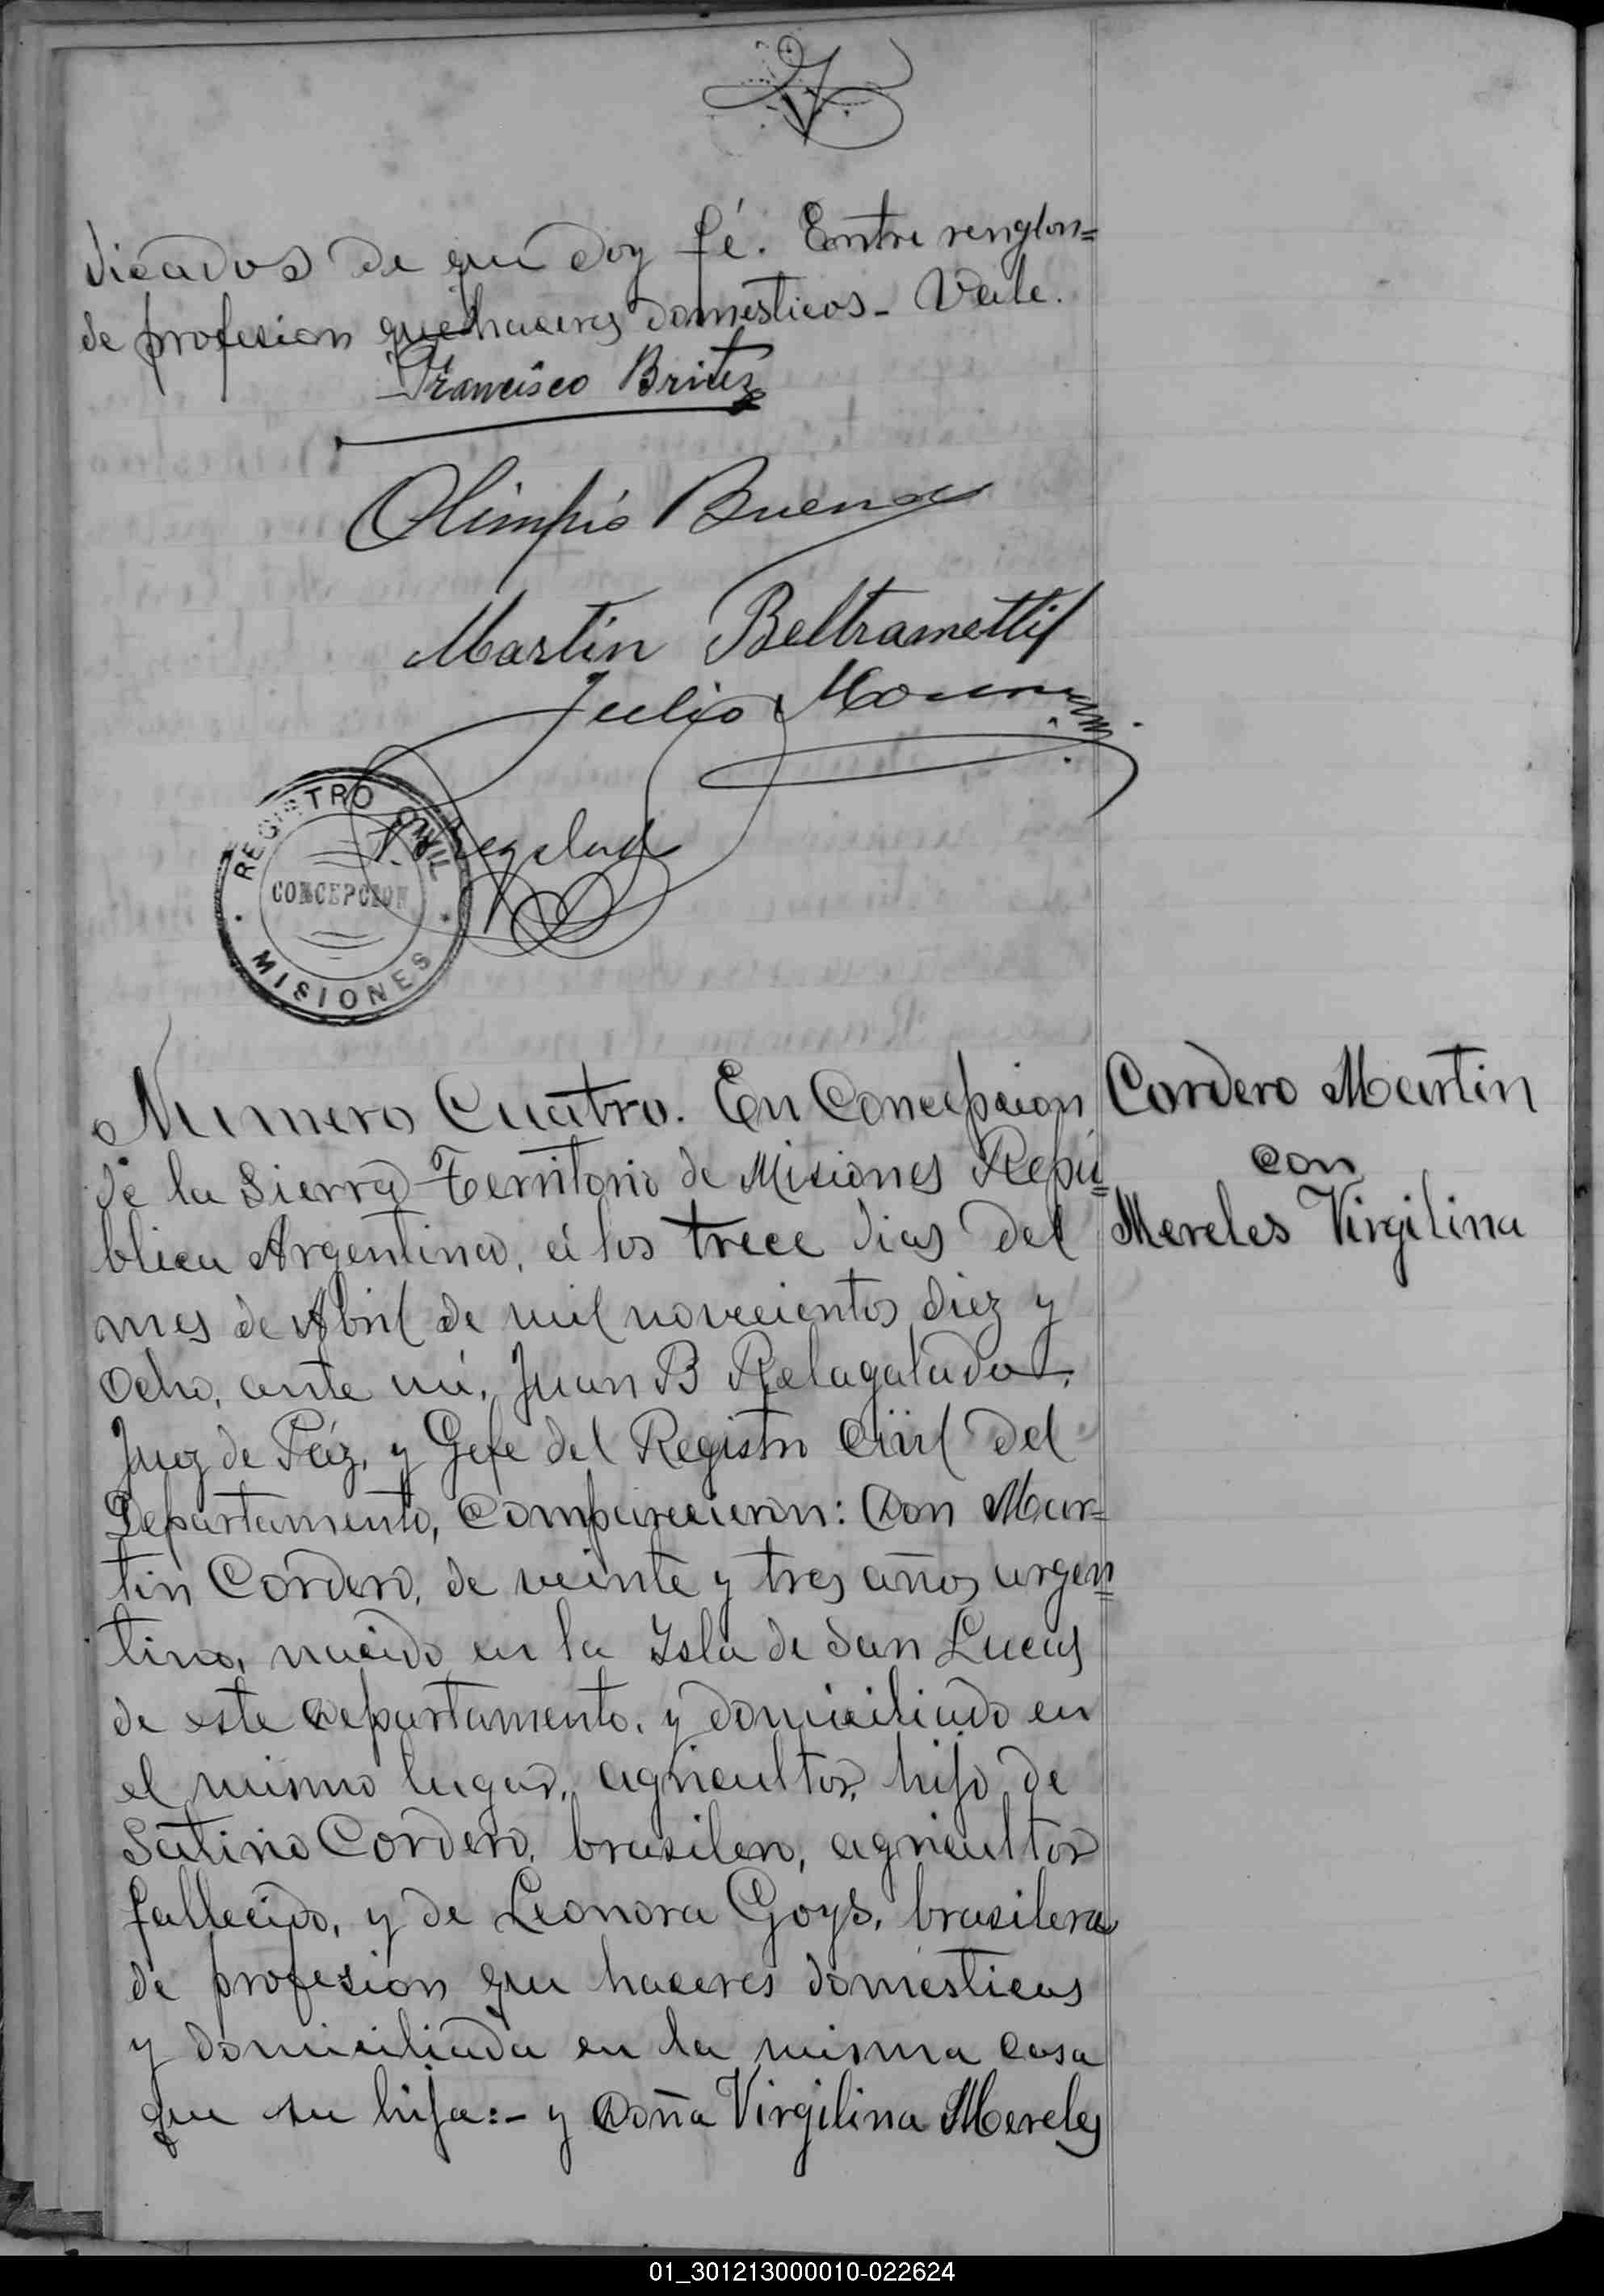 dicados de que doy fé. Entre renglon=
de profesion quehaceres domesticos - Vale.
Francisco Britez
Olimpio Bueno
Martin Beltrametti
Julio
REGISTRO CIVIL
CONCEPCION
MISIONES
Numero Cuatro. En Concepcion
de la Sierra Territorio de Misiones Repú=
blica Argentina, á los trece dias del
mes de Abril de mil novecientos diez y
ocho, ante mi, Juan B
Juez de Páz, y Gefe del Registro Civil del
Departamento, Comparecieron: Don Mar=
tin Cordero, de veinte y tres años argen=
tino, nacido en la Isla de San Lucas
de este departamento, y domiciliado en
el mismo lugar, agricultor, hijo de
Satirio Cordero, brasilero, agricultor
fallecido, y de Leonora Goys, brasilera
de profesion que haceres domesticos
y domiciliada en la misma casa
que su hija:- y Doña Virgilina Mereles
Cordero Martin
con
Mereles Virgilina
01_301213000010-022624